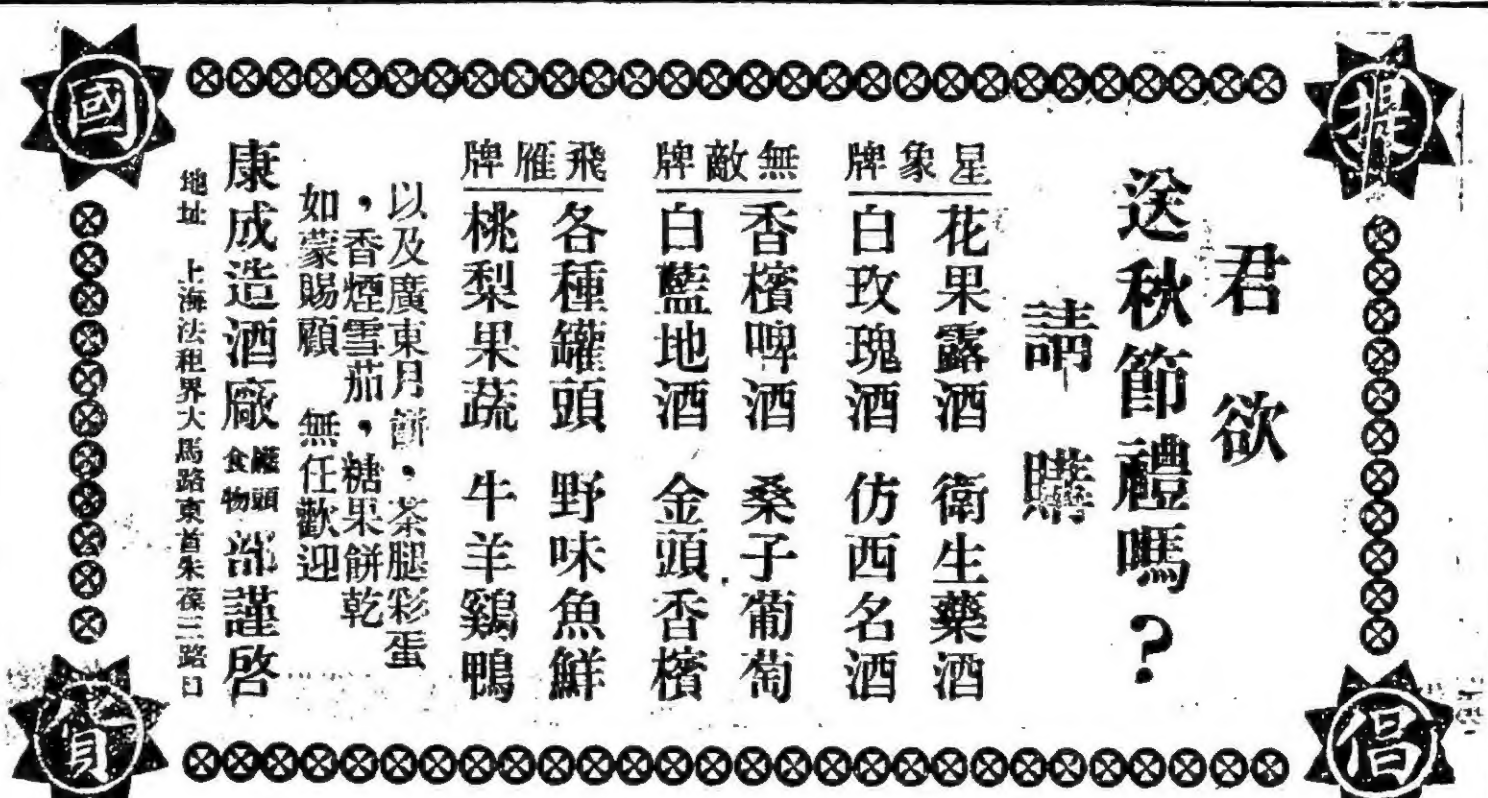 提
倡
國
貨
君欲
送秋節禮嗎？
請購
星象牌
花果露酒　衛生藥酒
白玫瑰酒　仿西名酒
無敵牌
香檳啤酒　桑子葡萄
白藍地酒　金頭香檳
飛雁牌
各種罐頭　野味魚鮮
桃梨果蔬　牛羊鷄鴨
以及廣東月餅，茶腿彩蛋
，香煙雪茄，糖果餅乾
如蒙賜顧　無任歡迎
康成造酒廠罐頭食物部謹啓
地址　上海法租界大馬路東首朱葆三路口